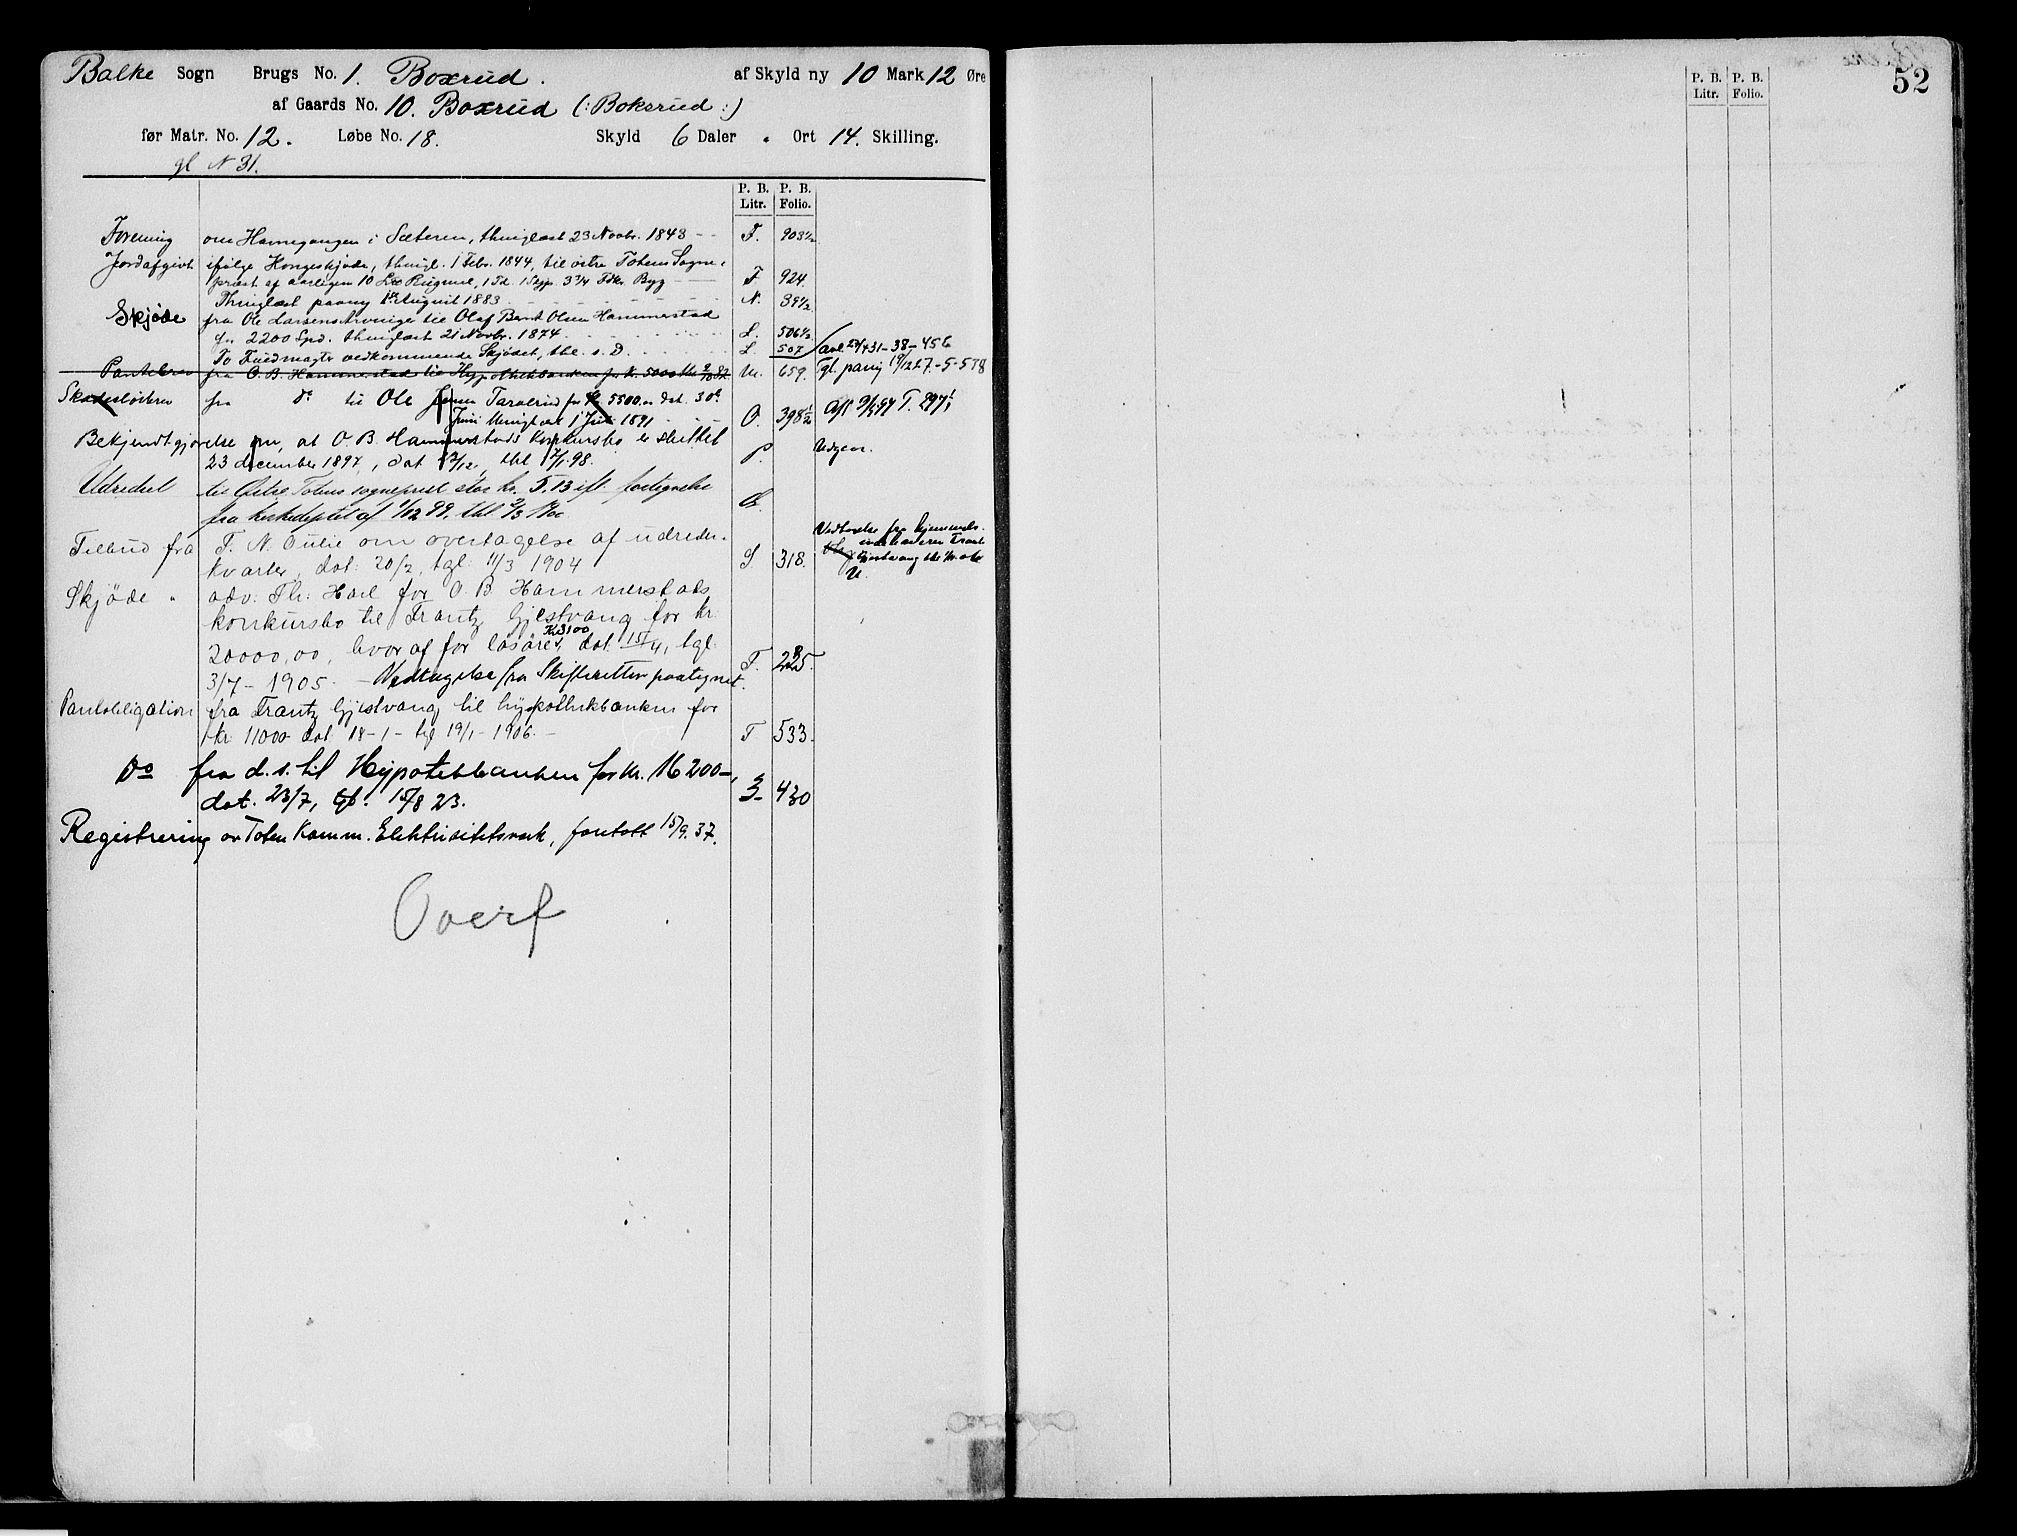 Balke Sogn Brugs No. 1. Boxrud. af Skyld ny 10 Mark 12 Øre
af Gaards No. 10. Boxrud (: Boksrud :)
før Matr. No. 12. Løbe No. 18. Skyld 6 Daler " Ort 14. Skilling.
gl N 31.
P. B. Litr. P. B. Folio.
Forening om Havnegangen i Sæteren, thinglæst 23 Novbr. 1843 F. 903½
Jordafgivt ifølge Kongeskjøde, thingl. 1 Febr. 1844, til østre Totens Sogne-
præst af aarligen 10 Rugmel, 1 Td. 1 Skjp. 3¾ Fdkr. Byg F 924.
Thinglæst paany August 1883 N. 39½
Skjøde fra Ole Larsens til Olaf Bernt Olsen Hammerstad
for 2200 Spd. thinglæst 21 Novbr. 1874 L. 506½
To Fuldmagter vedkommende Skjødet, thl. s. D. L. 507
31-38-456
Pantebrev fra O. B. Hammerstad til Hypothekbanken for Kr. 5000 M. 659. gl. paany 19/12 27.-5-558
Skadesløsbrev fra do til Ole Jensen for Kr 5500.00 dat. 30te
Juni thinglæst 1 Juli 1891 O. 398½ Afl 9/5 97 T.
Bekjendtgjørelse om, at O. B. Hammerstads Konkursbo er sluttet
23 december 1897, dat thl 98. P. Udgaar.
Udredsel til Østre Totens sogneprest stor kr. 5.13 ifl. fortegnelse
fra kirkedeptet af 1/12 99. thl 2/3 1900
Tilbud fra T. N. Oulie om overtagelse af udreder-
kvarter, dat: 20/2, tgl. 11/3 1904 S. 318. Vedtagelse fra
Skjøde " adv. Th: Hoel for O. B. Hammerstads
konkursbo til Frantz Gjestvang for kr.
20000,00, hvoraf for løsøret Kr 3100, dat. 15/4, tgl.
3/7 - 1905. - Vedtagelse fra Skifteretten paategnet. T. 225.
Pantobligation fra Frantz Gjestvang til hypothekbanken for
kr. 11000 dat 18-1- tgl 19/1-1906.- T 533.
Do fra d. s. til Hypotekbanken for kr. 16200-,
dat. 23/7, tgl. 15/8 23. 3- 430
Registrering av Toten Komm. Elektrisitetsverk, foretatt 15/9. 37.
Overf
52
P. B. Litr. P. B. Folio.